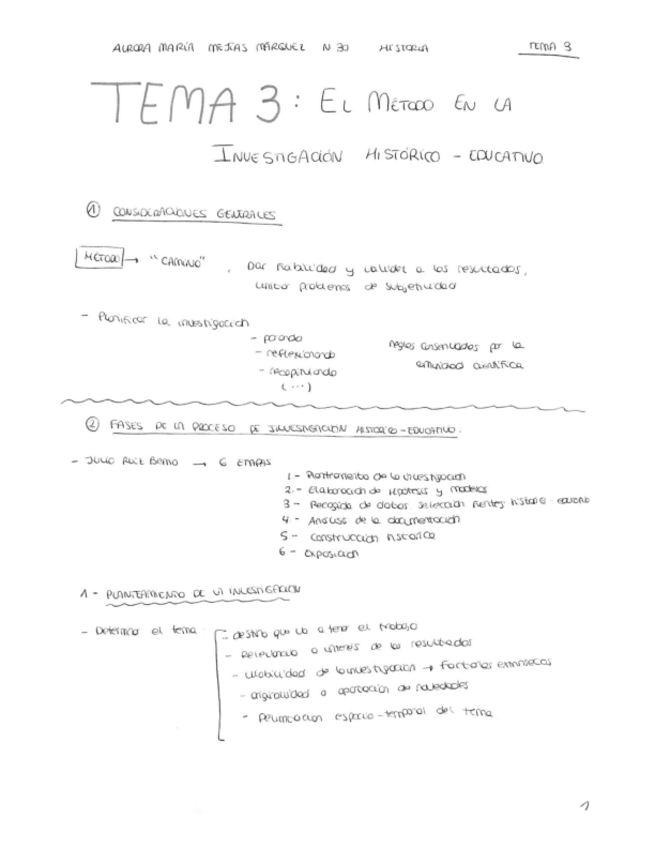 AURORA MARÍA MEJÍAS MÁRQUEZ N 30 HISTORIA TEMA 3
TEMA 3: EL MÉTODO EN LA
INVESTIGACIÓN HISTÓRICO - EDUCATIVO
① CONSIDERACIONES GENERALES
MÉTODO → "CAMINO", Dar fiabilidad y validez a los resultados,
evitar problemas de subjetividad
- Planificar la investigación
- parando
- reflexionando reglas consensuadas por la
- recopilando comunidad científica
(...)
② FASES DE LA PROCESO DE INVESTIGACIÓN HISTÓRICO-EDUCATIVO.
- JULIO RUIZ BERRIO → 6 ETAPAS
1.- Planteamiento de la investigación
2.- Elaboración de hipótesis y modelos
3 - Recogida de datos selección fuentes
4 - Análisis de la documentación
5 - Construcción histórica
6 - Exposición
1 - PLANTEAMIENTO DE LA INVESTIGACIÓN
- Determina el tema - destino que va a tener el trabajo
- Relevancia o interés de los resultados
- viabilidad de la investigación → factores extrínsecos
- originalidad o aportación de novedades
- Delimitación espacio-temporal del tema
1